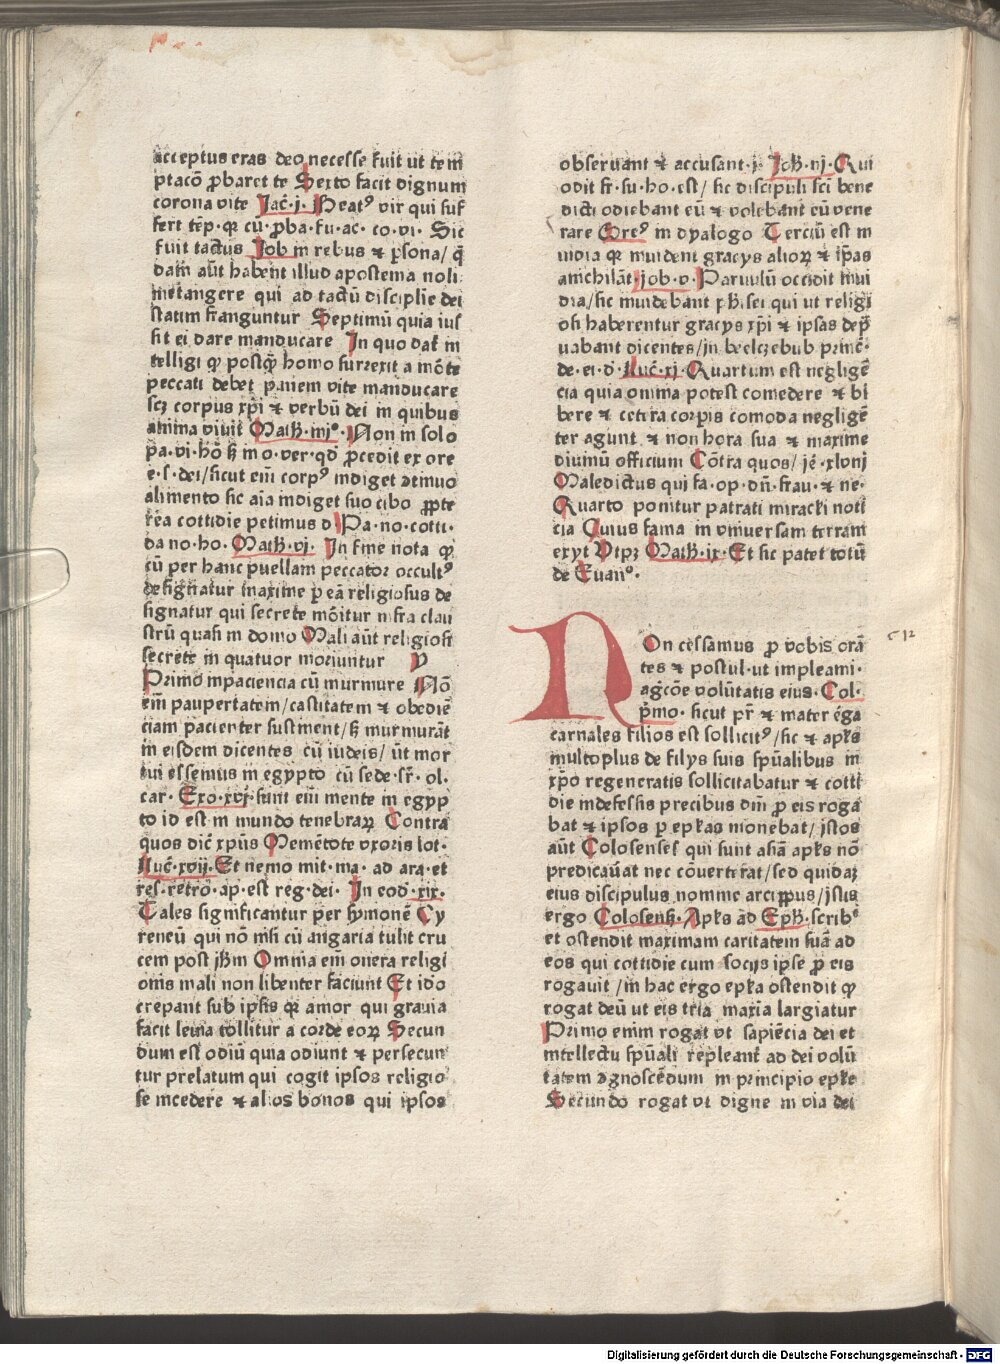 acceptus eras deo necesse fuit ut tem
ptacō ꝓbaret te Sexto facit dignum
corona vite Jac̄·j· Beatꝰ vir qui suf
fert tēp·qꝛ cū·ꝓba·fu·ac·co·vi· Sic
fuit tactus Job in rebus ⁊ ꝑsona/ q̄
dam aūt habent illud apostema noli
metangere qui ad tactū disciplie dei
statim franguntur Septimū quia ius
sit ei dare manducare In quo daꞇ̄ in
telligi ꝙ postq̄ȝ homo surrexit a mōte
peccati debet panem vite manducare
scȝ corpus xp̄i ⁊ verbū dei in quibus
anima vivit Math·iiijº· Non in solo
pa·vi·hō sȝ in o·ver·qḋ ꝓcedit ex ore
e·s·dei/sicut eim̄ corpꝰ indiget ↄtinuo
alimento sic aīa indiget suo cibo ꝓpte
rea cottidie petimus d Pa·no·cotti·
da no·ho· Math·vj· In fine nota ꝙ
cū per hanc puellam peccator occultꝰ
designatur maxime ꝑ eā religiosus de
signatur qui secrete mōitur infra clau
strū quasi in domo Mali aūt religiosi
secrete in quatuor moriuntur
Primo inpaciencia cū murmure Nō
em̄ paupertatem/castitatem ⁊ obediē
ciam pacienter sustinent/sȝ murmurāt
in eisdem dicentes cū iudeis/ūt mor
tui essemus in egypto cū sede·sr̄·ol·
car· Exo·xvj·sunt eim̄ mente in egyp
to id est in mundo tenebraꝝ Contra
quos dic̄ xpūs Mementote vxoris lot·
Luc̄·xvij·Et nemo mit·ma·ad ara·et
res·retro·ap·est reg·dei· In eod·xix·
Tales significantur per symonē Cy
reneū qui nō nisi cū angaria tulit cru
cem post ihm̄ Omnia em̄ onera religi
onis mali non libenter faciunt Et ido
crepant sub ipsis qꝛ amor qui gravia
facit levia tollitur a corde eoꝝ Secun
dum est odiū quia odiunt ⁊ persecun
tur prelatum qui cogit ipsos religio
se incedere ⁊ alios bonos qui ipsos
observant ⁊ accusant· Joh·iij·Qui
odit fr̄·su·ho·est/ sic discipuli sci bene
dicti odiebant eū ⁊ volebant eū vene
rare Greꝰ in dyalogo Terciū est in
vidia qꝛ invident gracys alioꝝ ⁊ ip̄as
anichilāt·job·v·Parvulū occidit invi
dia/sic invidebant ph̄isei qui ut religi
osi haberentur gracys xp̄i ⁊ ipsas dep̄
vabant dicentes/in beelczebub princ̄·
de·ei·d· Luc̄·xj·Quartum est negligē
cia quia omnia potest comedere ⁊ bi
bere ⁊ cetera corꝑis comoda negligē
ter agunt ⁊ non hora sua ⁊ maxime
diuinū officium Cōtra quos/ jē·xlviij
Maledictus qui fa·op·dn̄·frau·⁊ ne·
Quarto ponitur patrati miracli noti
cia Cuius fama in vniversam terram
exyt Vtpȝ Math·ix·Et sic patet totū
de Euanº·
NOn cessamus ꝓ vobis orā
tes ⁊ postul·ut impleami·
agcōe volūtatis eius·Col·
p̄mo· sicut pr̄ ⁊ mater ēga
carnales filios est sollicitꝰ/sic ⁊ apłs
multoplus de filys suis spūalibus in
xp̄o regeneratis sollicitabatur ⁊ cotti
die indefessis precibus dm̄ ꝓ eis roga
bat ⁊ ipsos ꝑ epłas monebat/istos
aūt Colosenses qui sunt asiā apłs nō
predicaūat nec cōuerterat/sed quidaȝ
eius discipulus nomine arcippus/istis
ergo Colosenß·Apłs ad Eph·scribᵉ
et ostendit maximam caritatem suā ad
eos qui cottidie cum socijs ipse ꝓ eis
rogauit/in hac ergo epła ostendit ꝙ
rogat deū ut eis tria maxīa largiatur
Primo enim rogat vt sapiēcia dei et
intellectu spūali repleant ad dei volū
tatem agnoscēdum in principio epłe
Secundo rogat vt digne in via dei
c 12
Digitalisierung gefördert durch die Deutsche Forschungsgemeinschaft - DFG